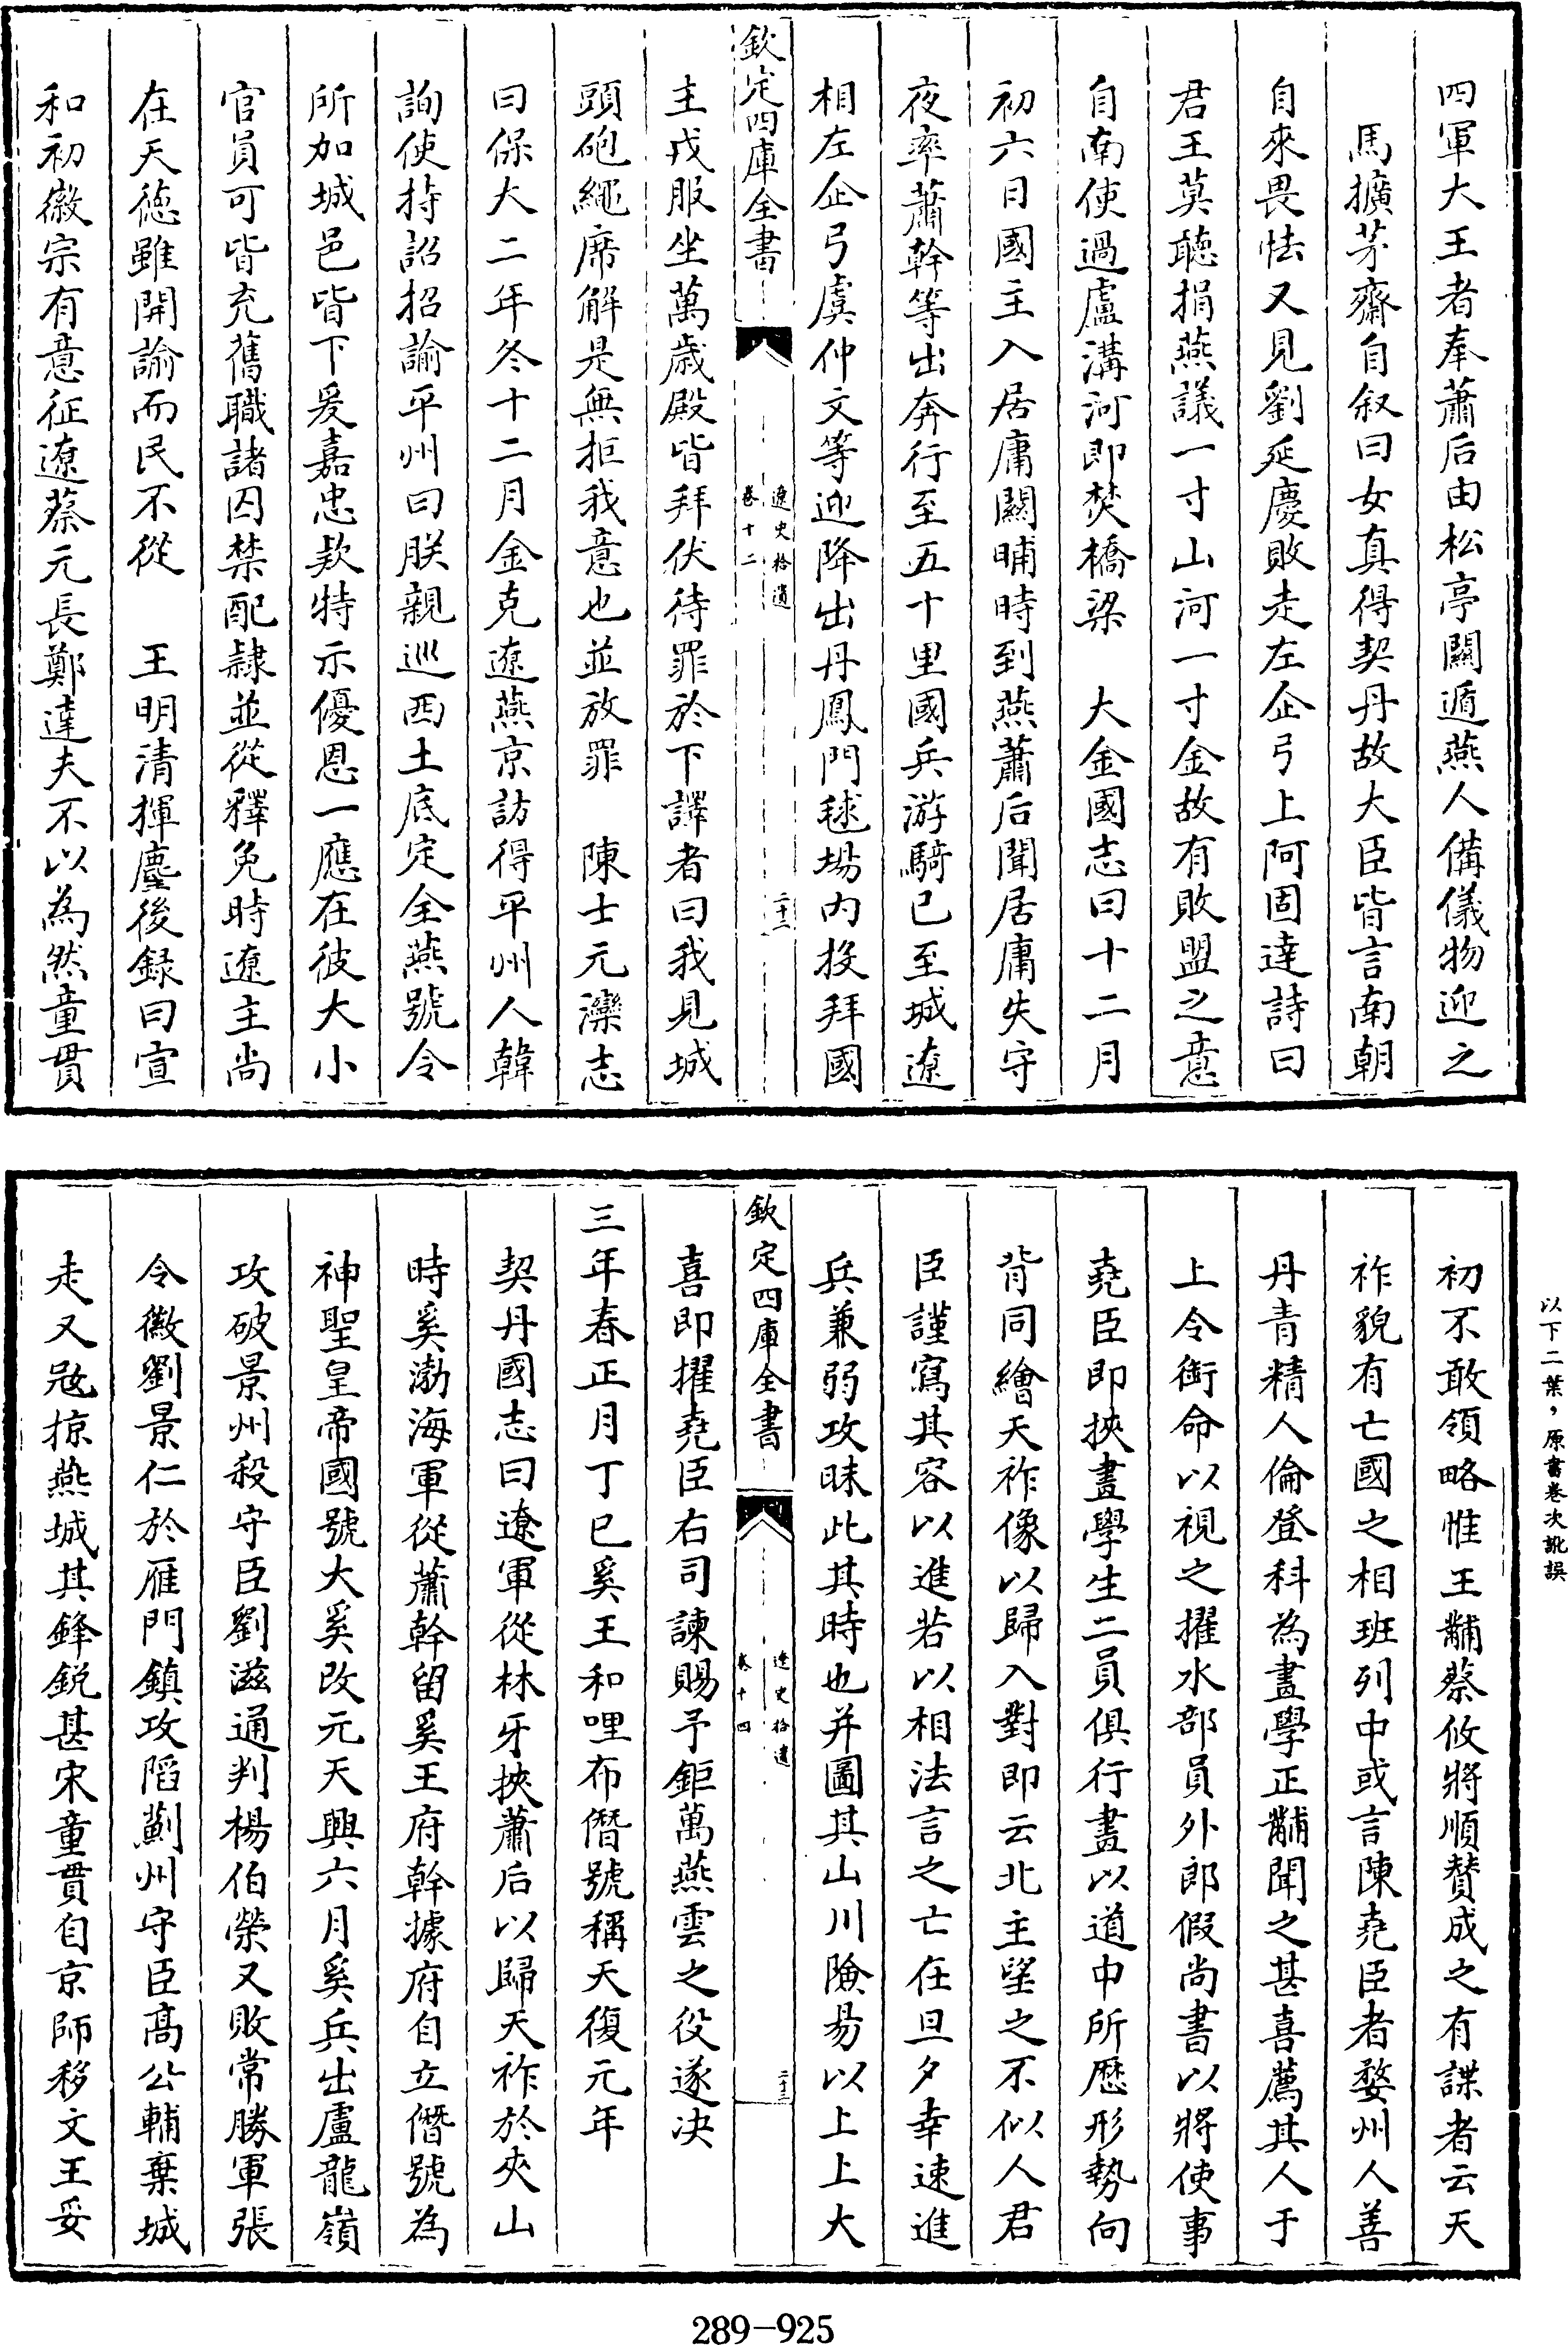 四軍大王者奉蕭后由松亭關遁燕人備儀物迎之
馬擴茅齋自叙曰女真得契丹故大臣皆言南朝
自來畏怯又見劉延慶敗走左企弓上阿固達詩曰
君王莫聽捐燕議一寸山河一寸金故有敗盟之意
自南使過盧溝河即焚橋梁　大金國志曰十二月
初六日國主入居庸關晡時到燕蕭后聞居庸失守
夜率蕭幹等出奔行至五十里國兵游騎已至城遼
相左企弓虞仲文等迎降出丹鳳門毬場内投拜國
欽定四庫全書
遼史拾遺
卷十二
二十二
主戎服坐萬歲殿皆拜伏待罪於下譯者曰我見城
頭砲繩席解是無拒我意也並放罪　陳士元灤志
曰保大二年冬十二月金克遼燕京訪得平州人韓
詢使持詔招諭平州曰朕親巡西土底定全燕號令
所加城邑皆下爰嘉忠款特示優恩一應在彼大小
官員可皆充舊職諸囚禁配隸並從釋免時遼主尚
在天徳雖開諭而民不從　王明清揮麈後録曰宣
和初徽宗有意征遼蔡元長鄭達夫不以為然童貫
以下二葉，原書卷次訛誤
初不敢領略惟王黼蔡攸將順贊成之有諜者云天
祚貌有亡國之相班列中或言陳堯臣者婺州人善
丹青精人倫登科為畫學正黼聞之甚喜薦其人于
上令銜命以視之擢水部員外郎假尚書以將使事
堯臣即挾畫學生二員俱行盡以道中所歷形勢向
背同繪天祚像以歸入對即云北主望之不似人君
臣謹寫其容以進若以相法言之亡在旦夕幸速進
兵兼弱攻昧此其時也并圖其山川險易以上上大
欽定四庫全書
遼史拾遺
卷十四
二十三
喜即擢堯臣右司諫賜予鉅萬燕雲之役遂决
三年春正月丁巳奚王和哩布僭號稱天復元年
契丹國志曰遼軍從林牙挾蕭后以歸天祚於夾山
時奚渤海軍從蕭幹留奚王府幹據府自立僭號為
神聖皇帝國號大奚改元天興六月奚兵出盧龍嶺
攻破景州殺守臣劉滋通判楊伯榮又敗常勝軍張
令徽劉景仁於雁門鎮攻䧟薊州守臣高公輔棄城
走又冦掠燕城其鋒鋭甚宋童貫自京師移文王妥
289-925